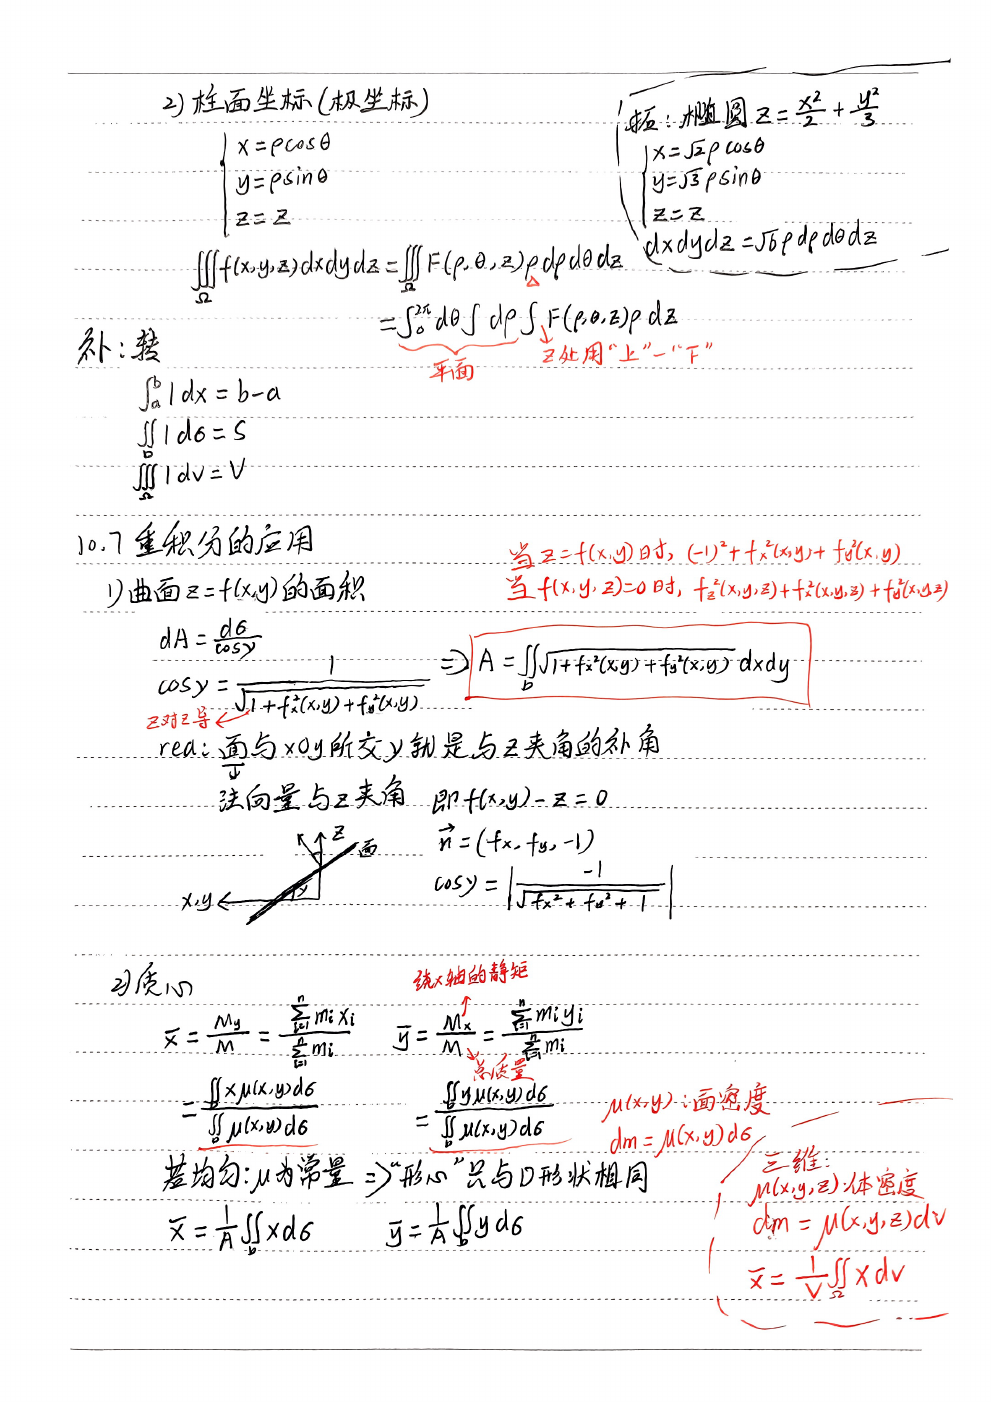 2) 柱面坐标(极坐标)
{ x=ρcosθ
y=ρsinθ
z=z
∭_Ω f(x,y,z)dxdydz=∭_Ω F(ρ,θ,z)ρdρdθdz
=∫₀^{2π}dθ∫dρ∫F(ρ,θ,z)ρdz
平面
z处用“上”-“下”
拓:椭圆 z=x²/2+y²/3
{ x=√2ρcosθ
y=√3ρsinθ
z=z
dxdydz=√6ρdρdθdz
补:转
∫_a^b 1dx=b-a
∬_D 1dσ=S
∭_Ω 1dv=V
10.7 重积分的应用
当z=f(x,y)时, (-1)²+fx²(x,y)+fy²(x,y)
当f(x,y,z)=0时, fz²(x,y,z)+fx²(x,y,z)+fy²(x,y,z)
1) 曲面z=f(x,y)的面积
dA=dσ/cosγ
cosγ=1/√(1+fx²(x,y)+fy²(x,y))
⇒ A=∬_D √(1+fx²(x,y)+fy²(x,y)) dxdy
z对z导
rea: 面与xOy所交γ就是与z夹角的补角
↓
法向量与z夹角 即f(x,y)-z=0
n⃗=(fx,fy,-1)
cosγ=|-1/√(fx²+fy²+1)|
z
面
γ
x,y
2) 质心
绕x轴的静矩
x̄=My/M=∑_{i=1}^n mixi/∑_{i=1}^n mi ȳ=Mx/M=∑_{i=1}^n miyi/∑_{i=1}^n mi
总质量
=∬_D xμ(x,y)dσ/∬_D μ(x,y)dσ =∬_D yμ(x,y)dσ/∬_D μ(x,y)dσ
μ(x,y):面密度
dm=μ(x,y)dσ
若均匀:μ为常量 ⇒“形心”只与D形状相同
x̄=1/A∬_D xdσ ȳ=1/A∬_D ydσ
三维:
μ(x,y,z):体密度
dm=μ(x,y,z)dv
x̄=1/V∬_Ω xdv